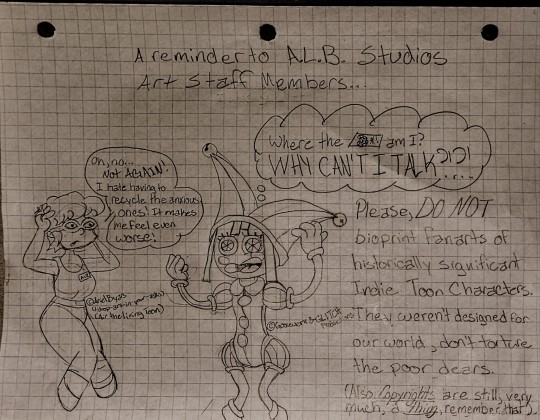 A reminder to A.L.B. Studios
Art Staff Members...
Oh, no...
Not AGAIN!
I hate having to
recycle the anxious
ones! It makes
me feel even
worse!
Where the am I?
WHY CAN'T I TALK?!?!
....
Please, DO NOT
bioprint fanarts of
historically significant
Indie Toon Characters.
They weren't designed for
our world, don't torture
the poor dears.
(Also, Copyrights are still, very
much, a Thing, remember that).